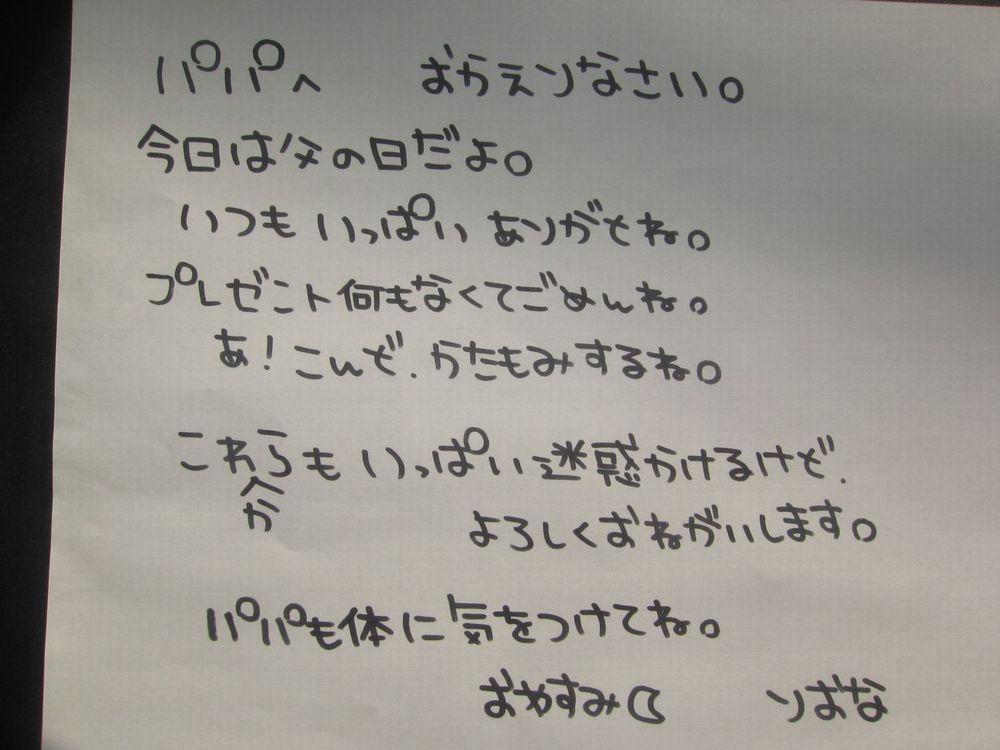 パパへ おかえりなさい。
今日は父の日だよ。
いつもいっぱいありがとね。
プレゼント何もなくてごめんね。
あ!こんど、かたもみするね。
これからもいっぱい迷惑かけるけど、
よろしくおねがいします。
パパも体に気をつけてね。
おやすみ☾ りおな